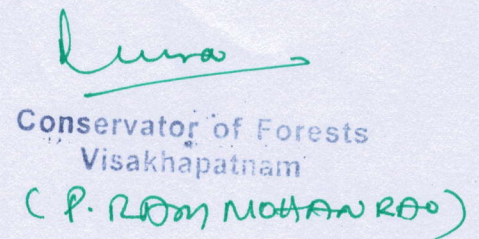 Conservator of Forests
Visakhapatnam
(P. RAM MOHAN RAO)